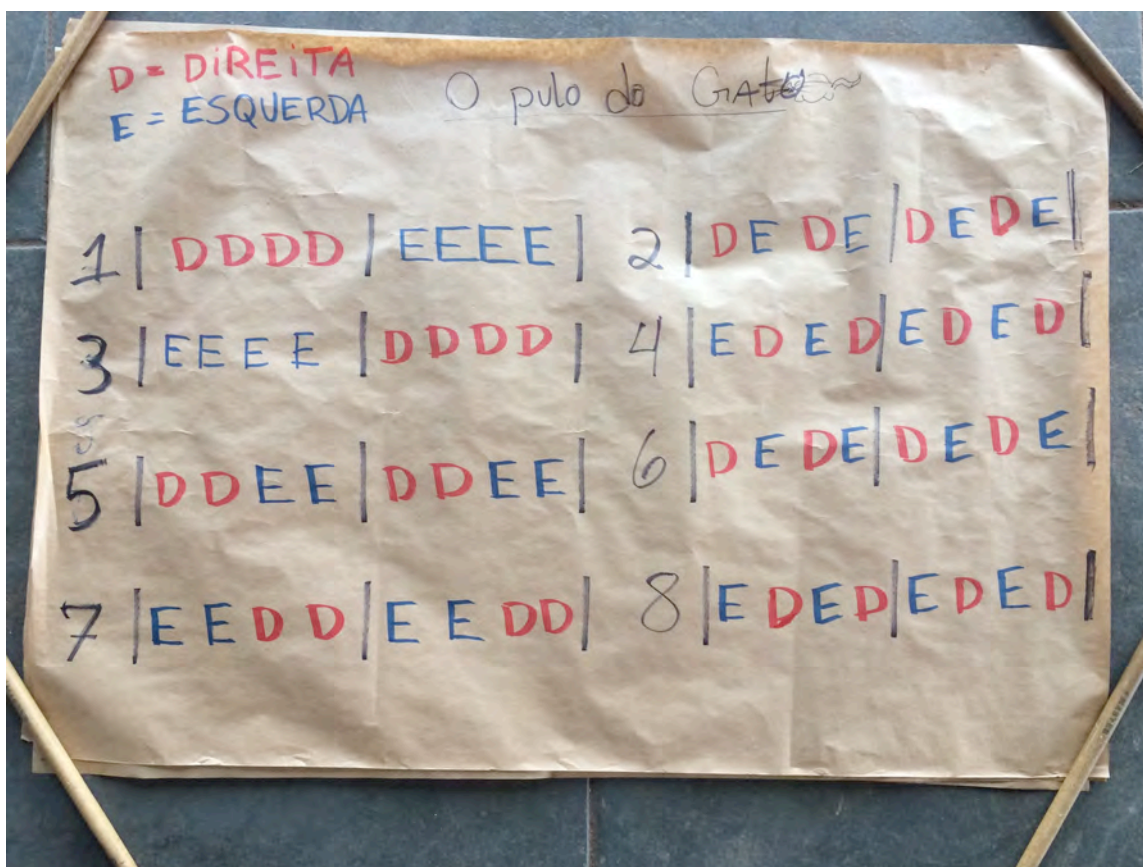 D = DiREiTA
E = ESQUERDA
O pulo do GAto
1 | DDDD | EEEE | 2 | DE DE | DEDE |
3 | EEEE | DDDD | 4 | EDED | EDED |
5 | DDEE | DDEE | 6 | DEDE | DEDE |
7 | EEDD | EEDD | 8 | EDED | EDED |